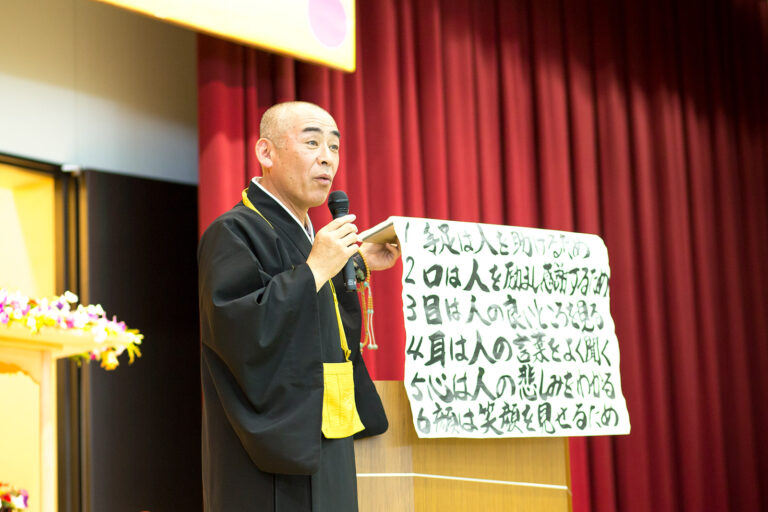 1 手足は人を助けるため
2 口は人を励まし感謝するため
3 目は人の良いところを見る
4 耳は人の言葉をよく聞く
5 心は人の悲しみをわかる
6 顔は笑顔を見せるため